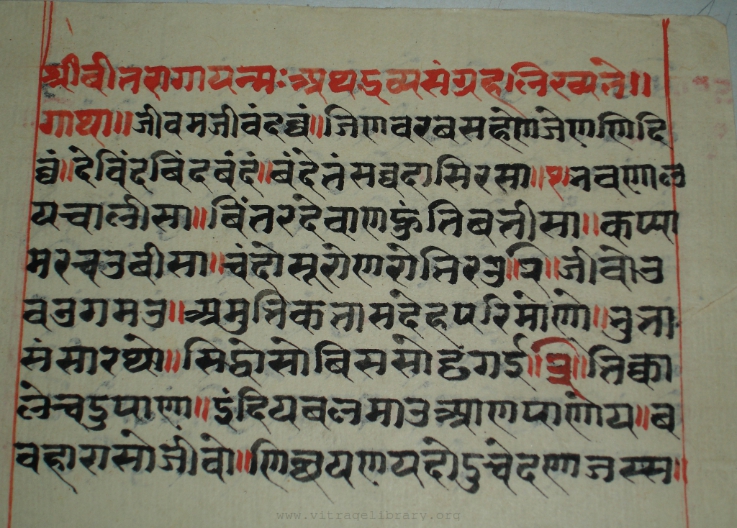 श्रीवीतरागायन्मः अथद्रव्यसंग्रहलिख्यते॥
गाथा॥जीवमजीवंदव्वं॥जिणवरबसहेणजेणणिदि
व्वं॥देविंदबिंदबंदं॥बंदेतंसव्वदासिरसा॥१॥भवणाल
यचालीसा॥बिंतरदेवाणहुंतिबत्तीसा॥कप्पा
मरचउबीसा॥चंदोसूरोणरोतिरउ॥२॥जीवोउ
वउगमउ॥अमुत्तिकत्तासदेहपरिमाणो॥भुत्ता
संसारथो॥सिद्धोसोबिससोढुंगई॥३॥तिक्का
लेचदुपाणा॥इंदियबलमाउआणपाणोय॥ब
वहारासोजीवो॥णिछयणयदोदुचेदणाजस्स॥
www.vitragelibrary.org